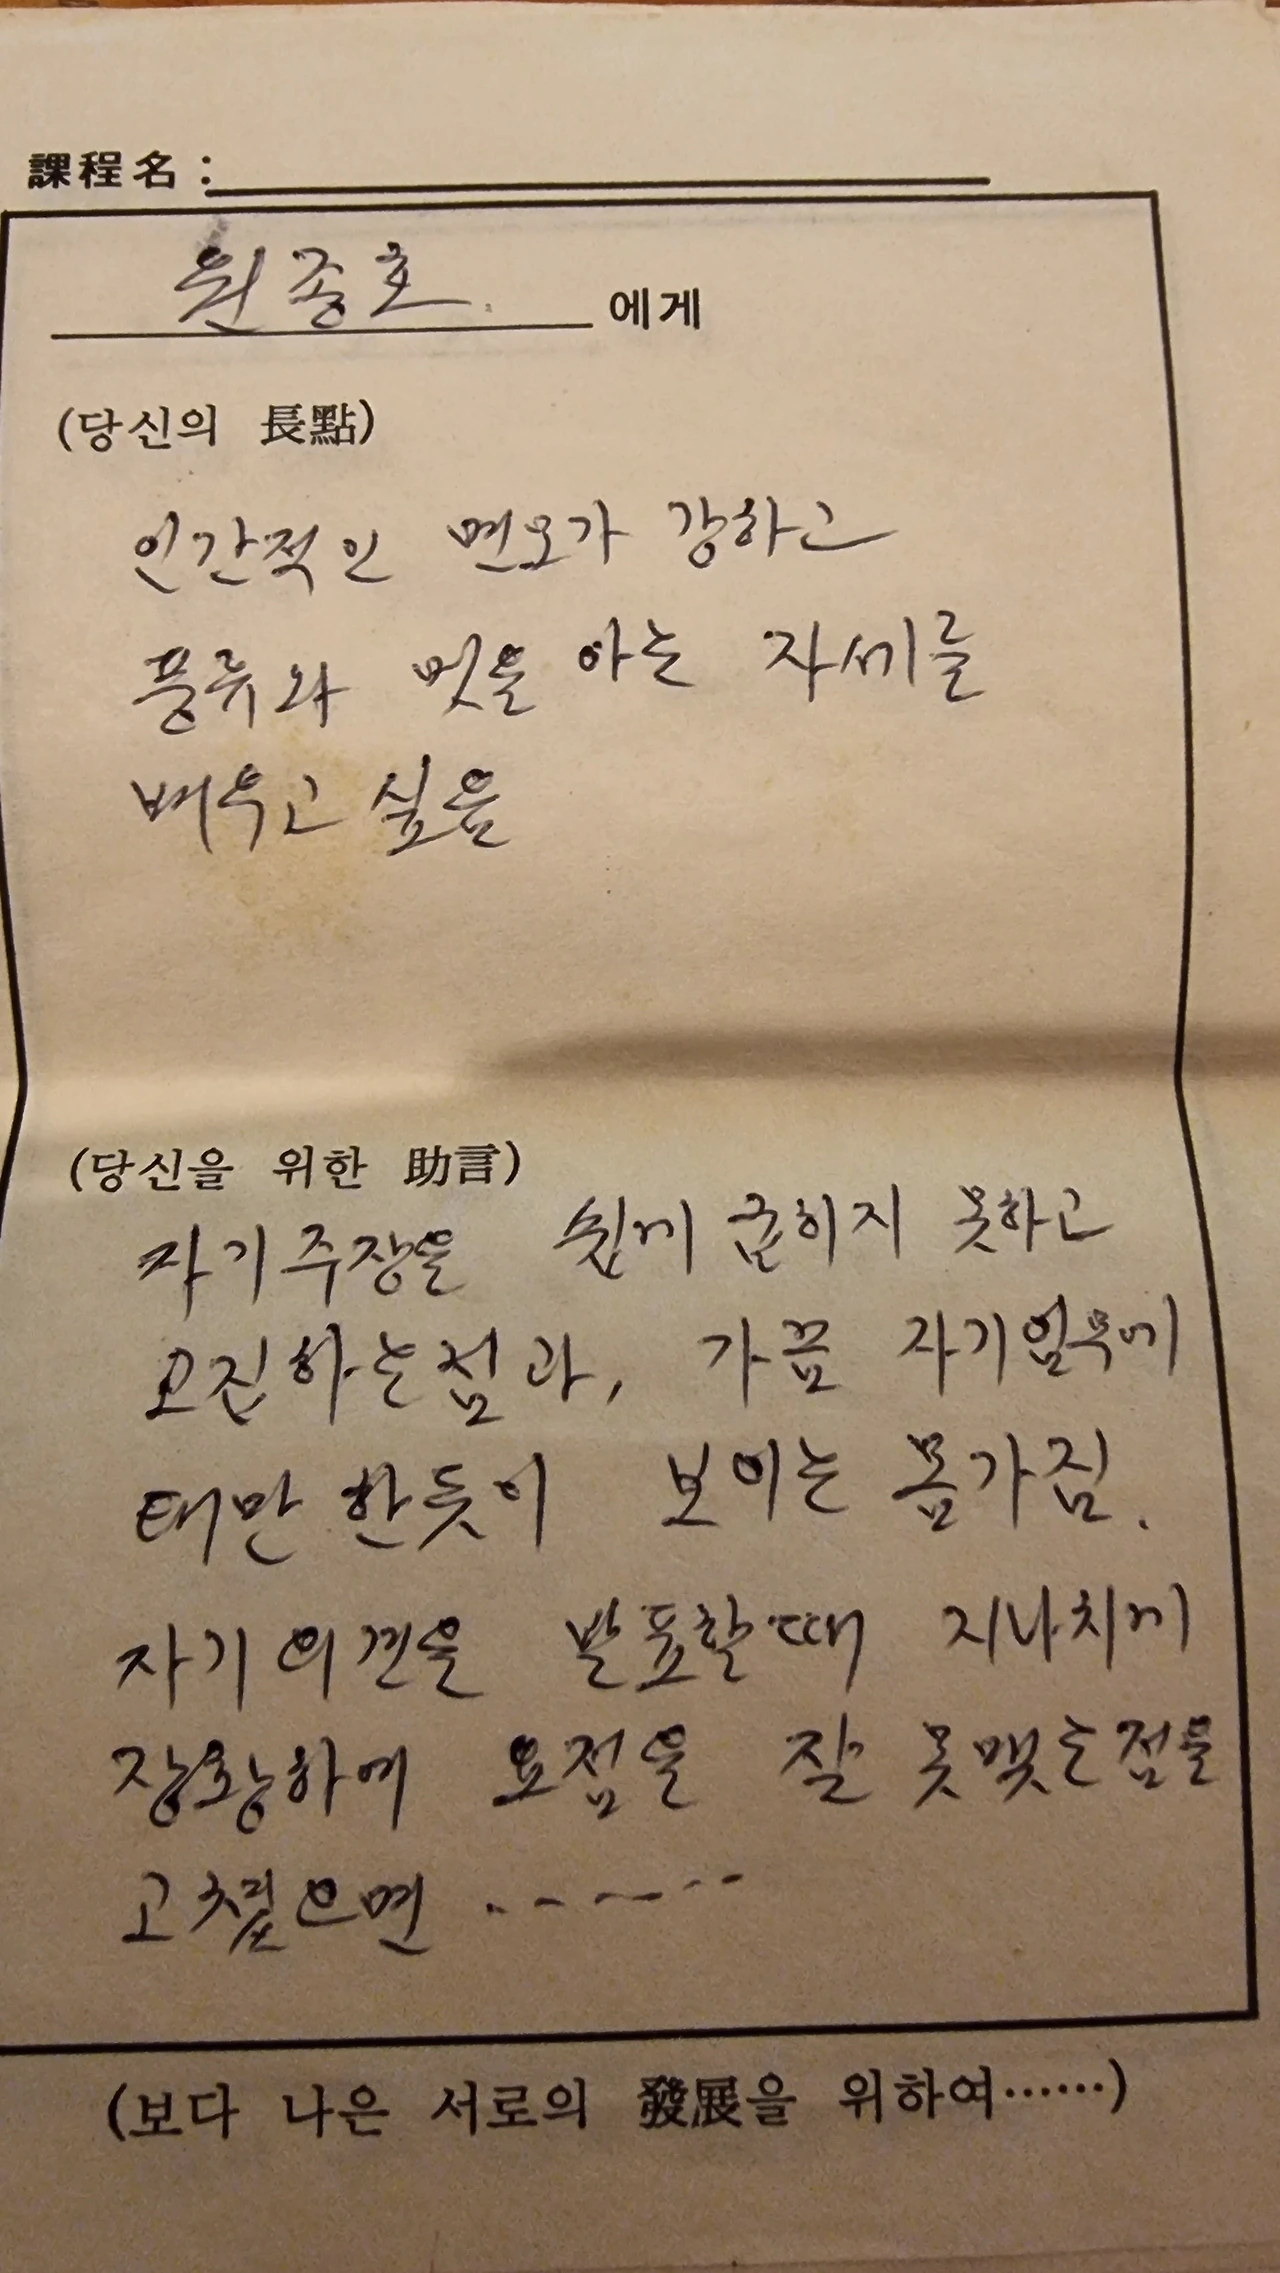 課程名 :
원종호 에게
(당신의 長點)
인간적인 면모가 강하고
풍류와 멋을 아는 자세를
배우고 싶음
(당신을 위한 助言)
자기주장을 쉽게 굽히지 못하고
고집하는점과, 가끔 자기업무에
태만한듯이 보이는 몸가짐.
자기의견을 발표할때 지나치게
장황하여 요점을 잘 못맺는점을
고쳤으면 ......
(보다 나은 서로의 發展을 위하여……)